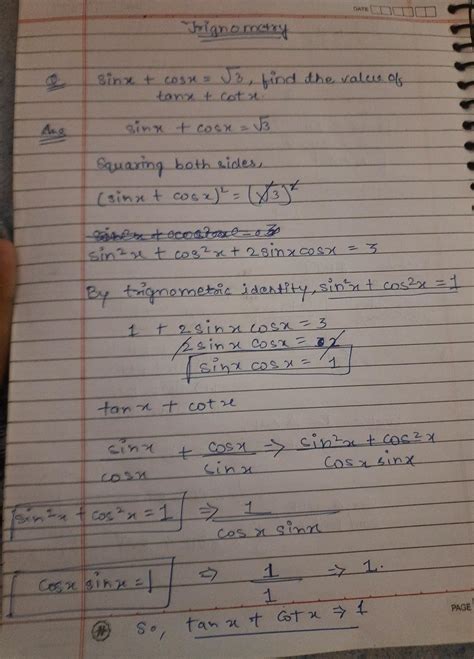 DATE
Trignometry
Q sinx + cosx = √3, find the value of
tanx + cotx.
Ans sinx + cosx = √3
Squaring both sides,
(sinx + cosx)² = (√3)²
sin²x + cos²x + 2sinxcosx = 3
By trignometric identity, sin²x + cos²x = 1
1 + 2sinx cosx = 3
2sinx cosx = 2
sinx cosx = 1
tanx + cotx
sinx/cosx + cosx/sinx → sin²x + cos²x/cosx sinx
sin²x + cos²x = 1 ⇒ 1/cosx sinx
cosx sinx = 1 ⇒ 1/1 → 1.
PAGE
# So, tanx + cotx ⇒ 1